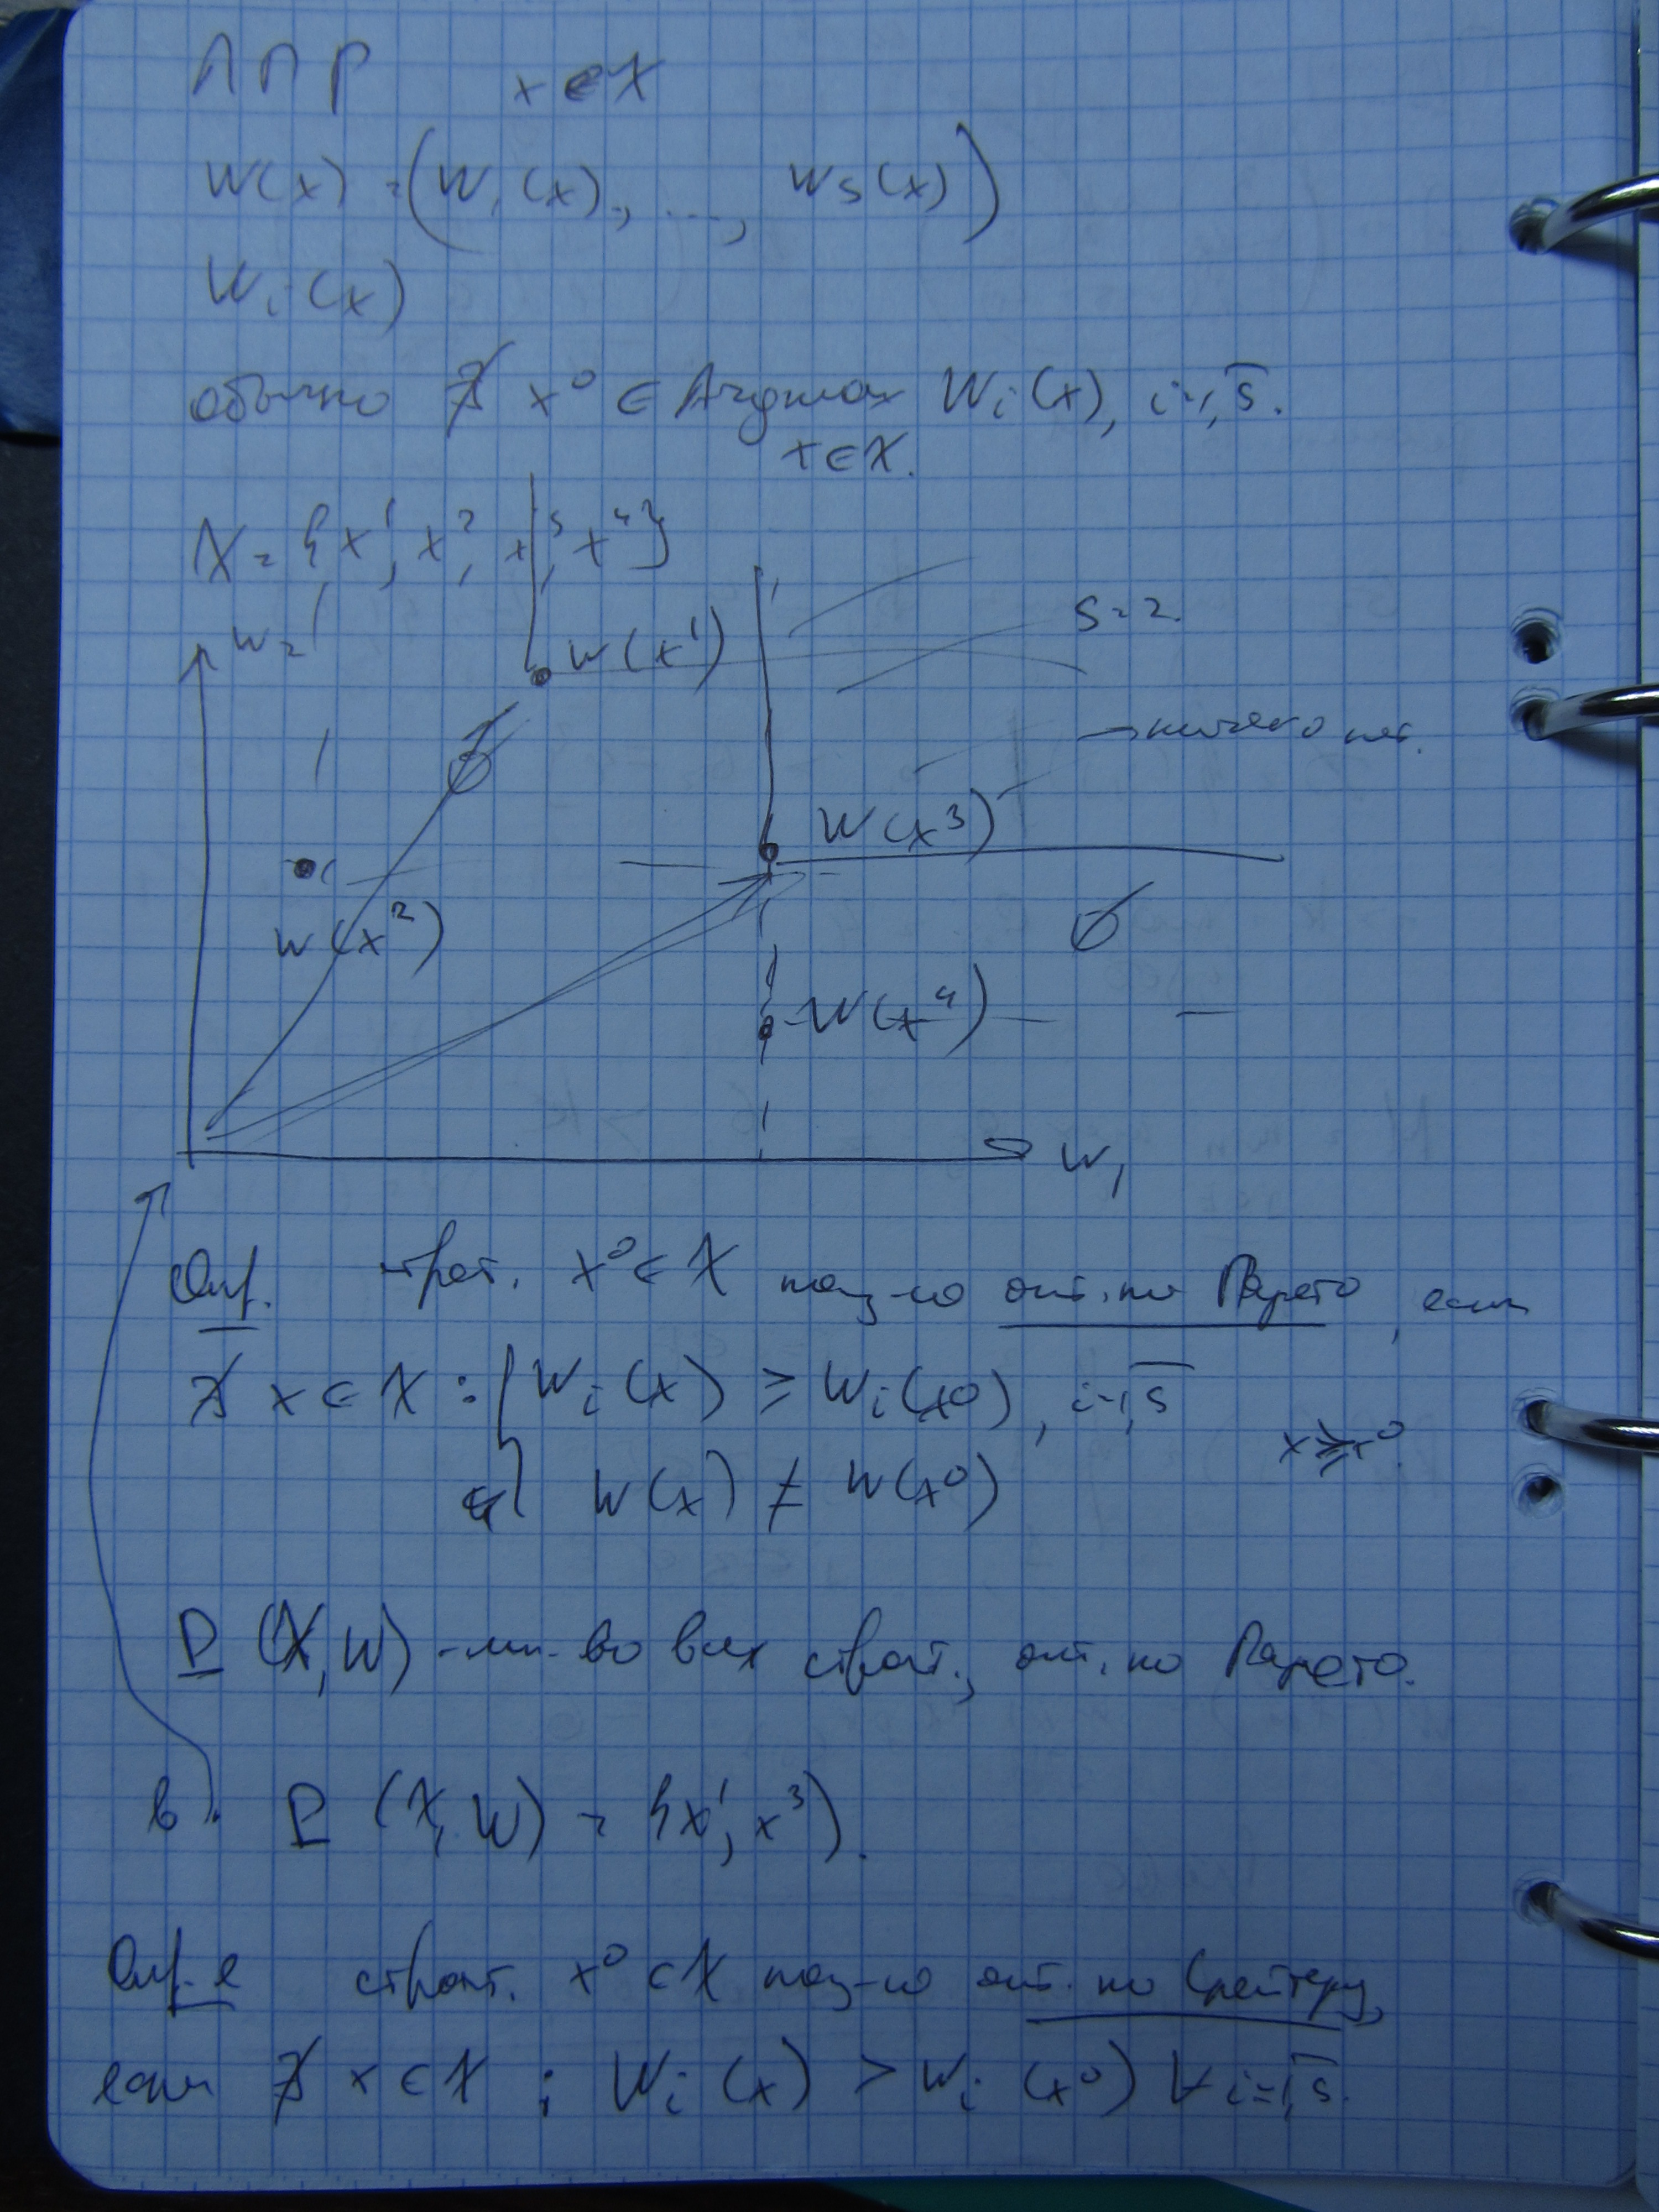 ЛПР x ∈ X
W(x) = (W₁(x), ..., Ws(x))
Wi(x)
обычно ∄ x⁰ ∈ Argmax Wi(x), i=1,s̅.
x ∈ X.
X = {x¹, x², x³, x⁴}
W₂
W(x¹)
S = 2.
∅
→ ничего нет.
W(x³)
W(x²)
∅
W(x⁴)
W₁
Опр. страт. x⁰ ∈ X наз-ся опт. по Парето, если
∄ x ∈ X : { Wi(x) ≥ Wi(x⁰), i=1,s̅
x ≽ x⁰
W(x) ≠ W(x⁰)
P (X, W) - мн-во всех страт., опт. по Парето.
в). P (X, W) = {x¹, x³}.
Опр-е страт. x⁰ ∈ X наз-ся опт. по Слейтеру,
если ∄ x ∈ X : Wi(x) > Wi(x⁰) ∀ i=1,s̅.